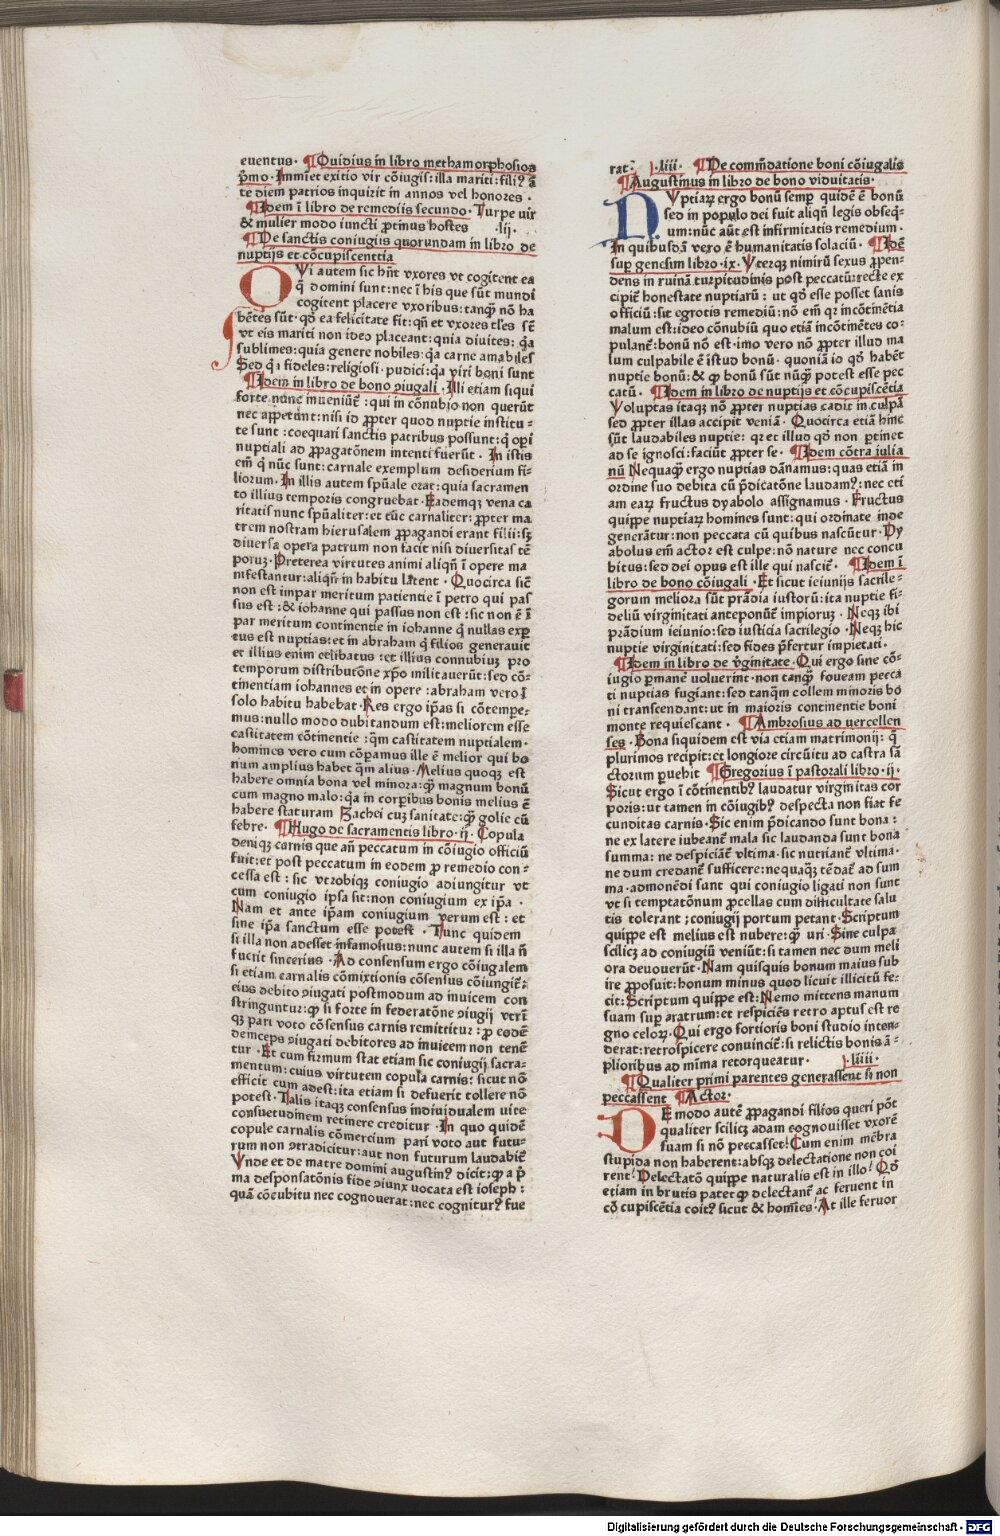 euentus· ¶Ouidius in libro methamorphosios
p̄mo·Immiet exitio vir cōiugis:illa mariti:filiꝰ ā
te diem patrios inquirit in annos vel honores·
¶Idem ī libro de remediis secundo·Turpe uir
& mulier modo iuncti protinus hostes ·lij·
¶De sanctis coniugiis quorundam in libro de
nuptijs et cōcupiscenttia
QVi autem sic hn̄t vxores vt cogitent ea
q̄ domini sunt:nec ī his que sūt mundi
cogitent placere vxoribus:tanqȝ nō ha
bētes sūt·qđ ea felicitate fit:qn̄ et vxores tľes sē
vt eis mariti non ideo placeant:quia diuites:qa
sublimes:quia genere nobiles:qa carne amabiles
Sed qȝ fideles:religiosi·pudici:qa viri boni sunt
¶Idem in libro de bono ꝯiugali·Illi etiam siqui
forte nunc inueniūt̄:qui in cōnubio non querūt
nec appetunt:nisi id ꝓpter quod nuptie institu-
te sunt:coequari sanctis patribus possunt:q̄ opi
nuptiali ad ꝓpagatōnem intenti fuerūt·In istis
em̄ q̄ nūc sunt:carnale exemplum desiderium fi-
liorum·In illis autem spūale erat:quia sacramen
to illius temporis congruebat·Eademqȝ vena ca
ritatis nunc spūaliter:et tūc carnaliter:ꝓpter ma
trem nostram hierusalem ꝓpagandi erant filii:sȝ
diuersa opera patrum non facit nisi diuersitas tē
porūȝ·Preterea virtutes animi aliqn̄ ī opere ma
nifestantur:aliqn̄ in habitu latent·Quocirca sic̄
non est impar meritum patientie ī petro qui pas
sus est:& iohanne qui passus non est:sic non ē ī
par meritum continentie in iohanne q̄ nullas exꝑ
tus est nuptias:et in abraham q̄ filios generauit
et illius enim celibatus:et illius connubiuȝ pro
temporum distributōne xp̄o militauerūt:sed cō-
tinentiam iohannes et in opere:abraham vero ī
solo habitu habebat·Res ergo ip̄as si cōtempe-
mus:nullo modo dubitandum est:meliorem esse
castitatem cōtinentie:qȝm castitatem nuptialem·
homines vero cum cōpamus ille ē melior qui bo
num amplius habet qȝm alius·Melius quoqȝ est
habere omnia bona vel minora:qȝ magnum bonū
cum magno malo:qa in corꝑibus bonis melius ē
habere staturam Zachei cuȝ sanitate:qȝ golie cū
febre· ¶Hugo de sacramentis libro·ij·Copula
deniqȝ carnis que an̄ peccatum in cōiugio officiū
fuit:et post peccatum in eodem ꝓ remedio con-
cessa est:sic vtrobiqȝ coniugio adiungitur vt
cum coniugio ipsa sit:non coniugium ex ip̄a·
Nam et ante ip̄am coniugium verum est:et
sine ip̄a sanctum esse potest·Tunc quidem
si illa non adesset infamosius:nunc autem si illa n̄
fuerit sincerius·Ad consensum ergo cōiugalem
si etiam carnalis cōmixtionis cōsensus cōiungit̄:
eius debito ꝯiugati postmodum ad inuicem con
stringuntur:qȝ si forte in federatōne ꝯiugij vtri
qȝ pari voto cōsensus carnis remittitur:ꝓ eodē
demceps ꝯiugati debitores ad inuicem non tenē
tur·Et cum firmum stat etiam sic coniugij sacra-
mentum:cuius virtutem copula carnis:sicut nō
efficit cum adest:ita etiam si defuerit tollere nō
potest·Talis itaqȝ consensus indiuidualem uite
consuetudinem retinere creditur·In quo quidē
copule carnalis cōmercium pari voto aut futu-
rum non ꝯtradicitur:aut non futurum laudabit̄
Vnde et de matre domini augustinꝰ dicit:qȝ a p̄
ma desponsatōnis fide ꝯiunx uocata est ioseph:
quā cōcubitu nec cognouerat:nec cogniturꝰ fue
rat· ·liii· ¶De commēdatione boni cōiugalis
¶Augustinus in libro de bono viduitatis·
NVptiaꝝ ergo bonū semꝑ quidē ē bonū
sed in populo dei fuit aliqn̄ legis obseq̄-
um:nūc aūt est infirmitatis remedium·
In quibusdā vero ē humanitatis solaciū·¶Idē
suꝑ genesim libro·ix·Vterqȝ nimirū sexus ꝓpen-
dens in ruinā turpitudinis post peccatū:recte ex
cipit̄ honestate nuptiarū:ut qđ esse posset sanis
officiū:sit egrotis remediū:nō em̄ qꝛ incōtinētia
malum est:ideo cōnubiū quo etiā incōtinētes co-
pulant̄:bonū nō est·imo vero nō ꝓpter illud ma
lum culpabile ē istud bonū·quoniā io qđ habēt
nuptie bonū:& qȝ bonū sūt nūqȝ potest esse pec
catū·¶Idem in libro de nuptijs et cōcupiscētia
Voluptas itaqȝ nō ꝓpter nuptias cadit in culpā
sed ꝓpter illas accipit veniā·Quocirca etiā hinc
sūt laudabiles nuptie:qꝛ et illud qđ non ꝑtinet
ad se ignosci:faciūt ꝓpter se·¶Idem cōtra iulia
nū Nequaqȝ ergo nuptias dānamus:quas etiā in
ordine suo debita cū p̄dicatōne laudamꝰ:nec eti
am eaꝝ fructus dyabolo assignamus·Fructus
quippe nuptiaꝝ homines sunt:qui ordinate inde
generātur:non peccata cū quibus nascūtur·Dy
abolus em̄ actor est culpe:nō nature nec concu
bitus:sed dei opus est ille qui nascit̄·¶Idem ī
libro de bono cōiugali·Et sicut ieiunijs sacrile-
gorum meliora sūt prādia iustorū:ita nuptie fi-
deliū virginitati anteponūt̄ impioruȝ·Neqȝ ibi
prādium ieiunio:sed iusticia sacrilegio·Neqȝ hic
nuptie virginitati:sed fides p̄fertur impietati·
¶Idem in libro de v̄ginitate·Qui ergo sine cō-
iugio ꝑmanē voluerint·non tanqȝ foueam pecca
ti nuptias fugiant:sed tanqȝm collem minoris bo
ni transcendant:ut in maioris continentie boni
monte requiescant·¶Ambrosius ad uercellen
ses·Bona siquidem est via etiam matrimonij:q̄
plurimos recipit:et longiore circūitu ad castra sā
ctorum ꝑuehit ¶Gregorius ī pastorali libro·ij·
Sicut ergo ī cōtinentibꝰ laudatur virginitas cor
poris:ut tamen in cōiugibꝰ despecta non fiat fe
cunditas carnis·Sic enim p̄dicando sunt bona:
ne ex latere iubeant̄ mala sic laudanda sunt bona
summa:ne despiciāt̄ vltima·sic nutriant̄ vltima·
ne dum credant̄ sufficere:nequaqȝ tēdat̄ ad sum
ma·admonēdi sunt qui coniugio ligati non sunt
vt si temptatōnum ꝓcellas cum difficultate salu
tis tolerant:coniugij portum petant·Scriptum
quippe est melius est nubere:qȝ uri·Sine culpa
scilicȝ ad coniugiū veniūt:si tamen nec dum meli
ora deuouerūt·Nam quisquis bonum maius sub
ire ꝓposuit:bonum minus quod licuit illicitū fe-
cit:Scriptum quippe est:Nemo mittens manum
suam suꝑ aratrum:et respiciēs retro aptus est re
gno celoꝝ·Qui ergo fortioris boni studio inten-
derat:retrospicere conuincit̄:si relictis bonis ā-
plioribus ad mīma retorqueatur· ·liiii·
¶Qualiter primi parentes generassent si non
peccassent ¶Actor·
DE modo autē ꝓpagandi filios queri pōt
qualiter scilicȝ adam cognouisset vxorē
suam si nō peccasset?Cum enim mēbra
stupida non haberent:absqȝ delectatione non coi
rent?Delectatō quippe naturalis est in illo?Qđ
etiam in brutis patet qȝ delectant̄ ac feruent in
cō cupiscētia coitꝰ sicut & homīes?At ille feruor
Digitalisierung gefördert durch die Deutsche Forschungsgemeinschaft · DFG